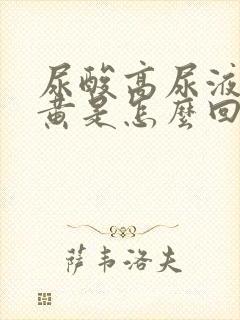 尿酸高尿液
黄是怎麼回
萨韦洛夫